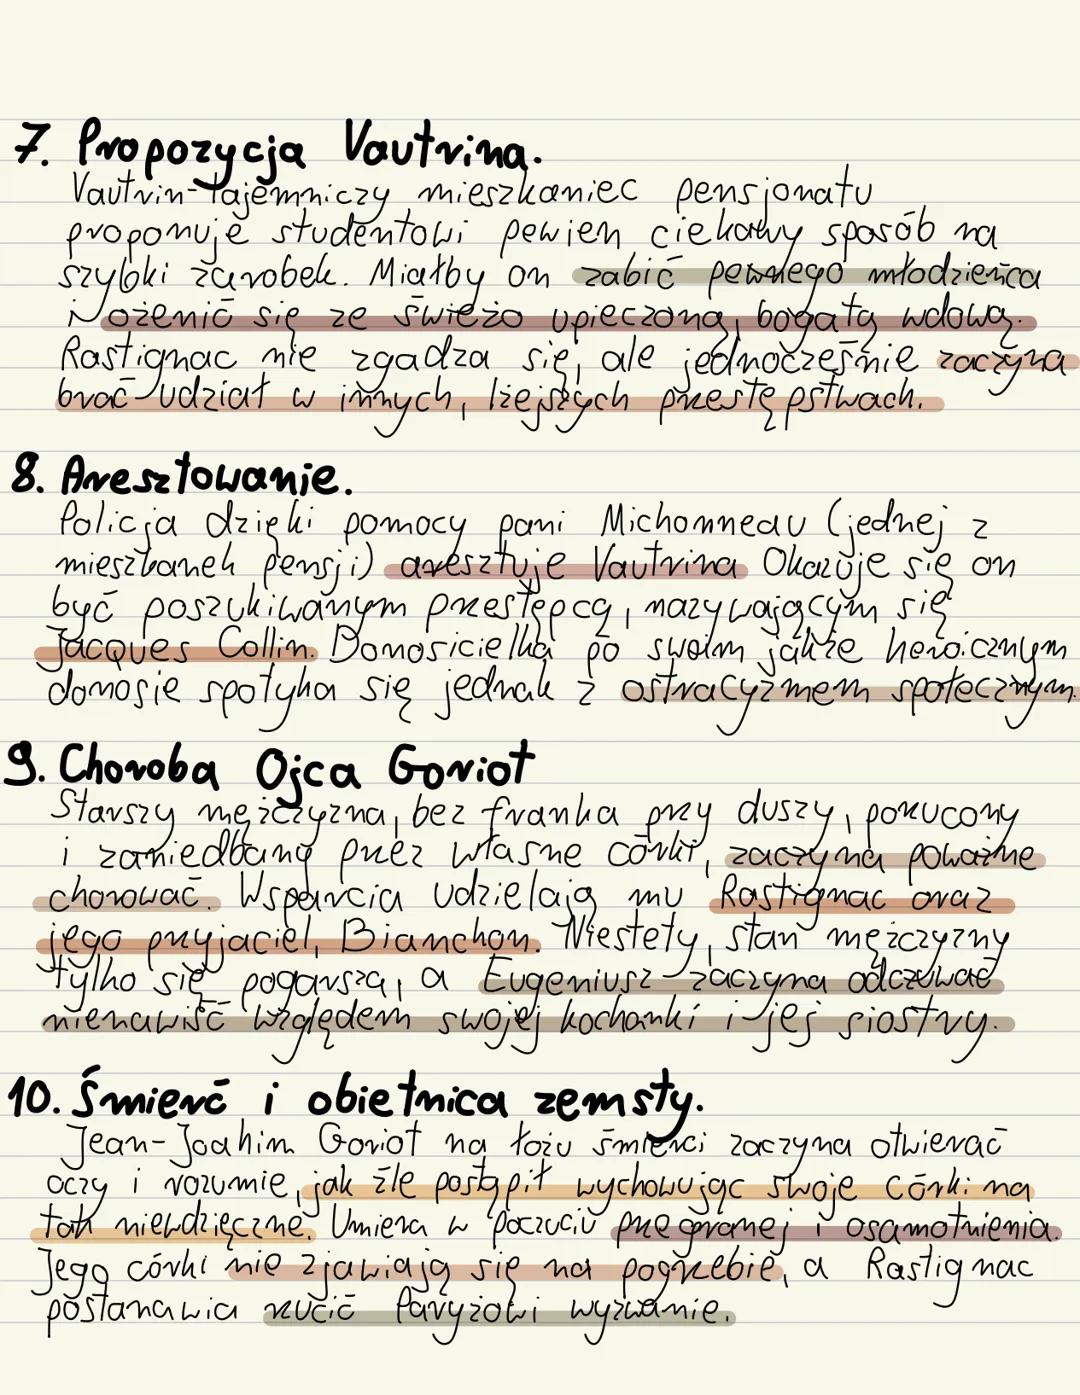 7. Propozycja Vautrina.
Vautrin-Tajemniczy mieszkaniec pensjonatu
proponuje studentowi pewien ciekawy sposób na
szybki zarobek. Miałby on zabić pewnego młodzieńca
i ożenić się ze świeżo upieczoną, bogatą wdową.
Rastignac nie zgadza się, ale jednocześnie zaczyna
brać udział w innych, lżejszych przestępstwach.
8. Aresztowanie.
Policja dzięki pomocy pani Michonneau (jednej z
mieszkanek pensji) aresztuje Vautrina Okazuje się on
być poszukiwanym przestępcą, nazywającym się
Jacques Collin. Donosicielka po swoim jakże heroicznym
donosie spotyka się jednak z ostracyzmem społecznym.
9. Choroba Ojca Goriot
Starszy mężczyzna, bez franka przy duszy, porzucony
i zaniedbany przez własne córki, zaczyna poważnie
chorować. Wsparcia udzielają mu Rastignac oraz
jego przyjaciel, Bianchon. Niestety, stan mężczyzny
tylko się pogarsza, a Eugeniusz zaczyna odczuwać
nienawiść względem swojej kochanki i jej siostry.
10. Śmierć i obietnica zemsty.
Jean-Joahim Goriot na łożu śmierci zaczyna otwierać
oczy i rozumie, jak źle postąpił wychowując swoje córki na
tak niewdzięczne. Umiera w poczuciu przegranej i osamotnienia.
Jego córki nie zjawiają się na pogrzebie, a Rastignac
postanawia rzucić Paryżowi wyzwanie.